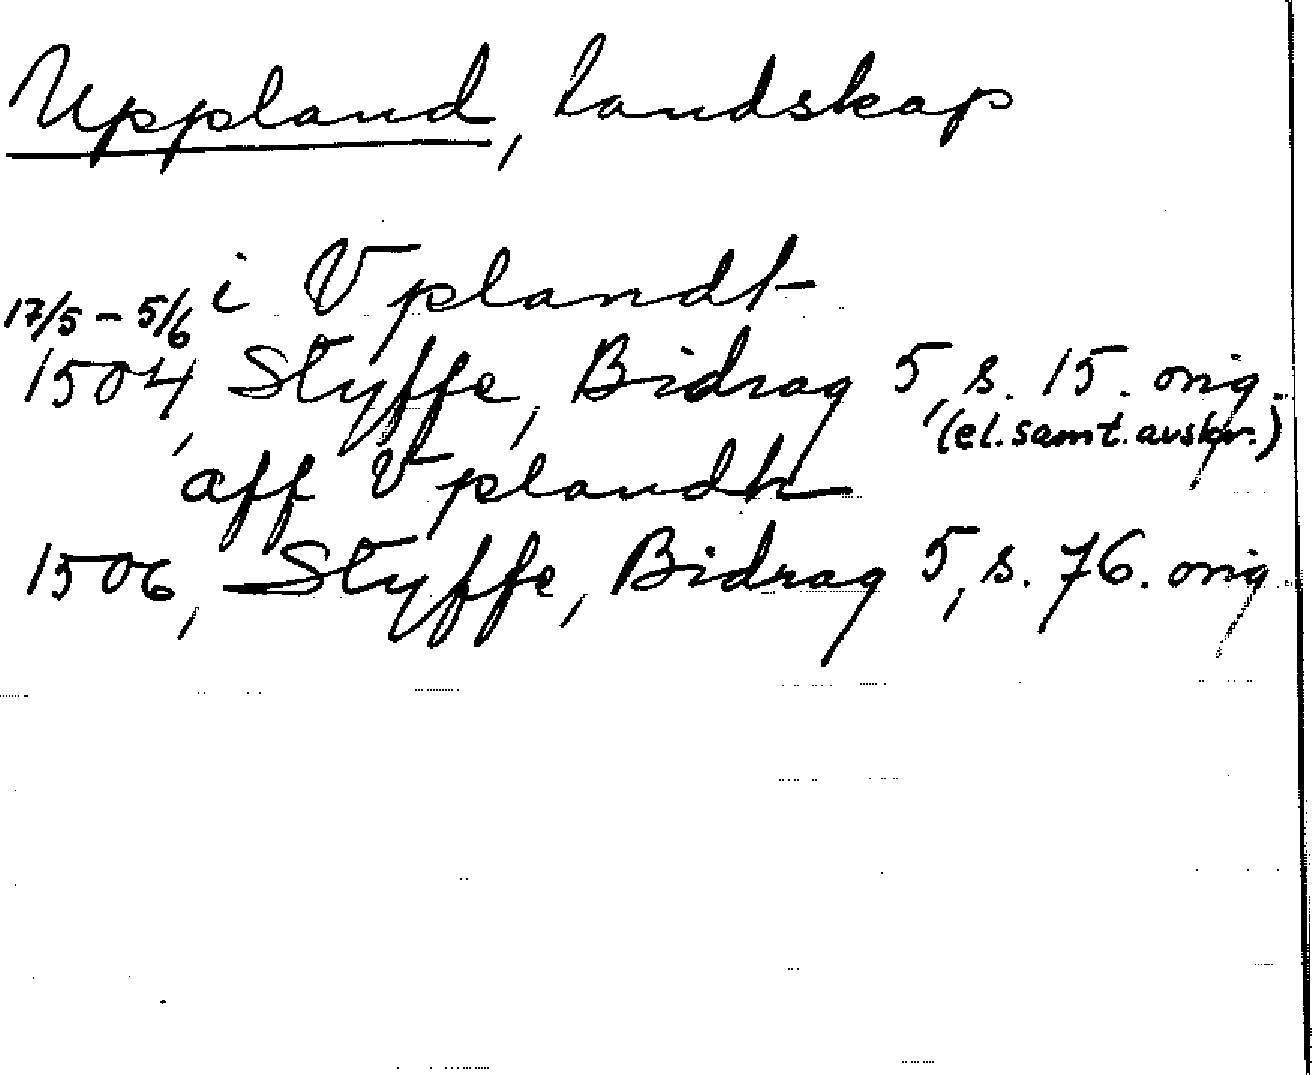 Uppland, landskap
i Vplandt
17/5 - 5/6
1504, Styffe, Bidrag 5, s. 15. orig.
(el. samt. avskr.)
aff Vplandh
1506, Styffe, Bidrag 5, s. 76. orig.